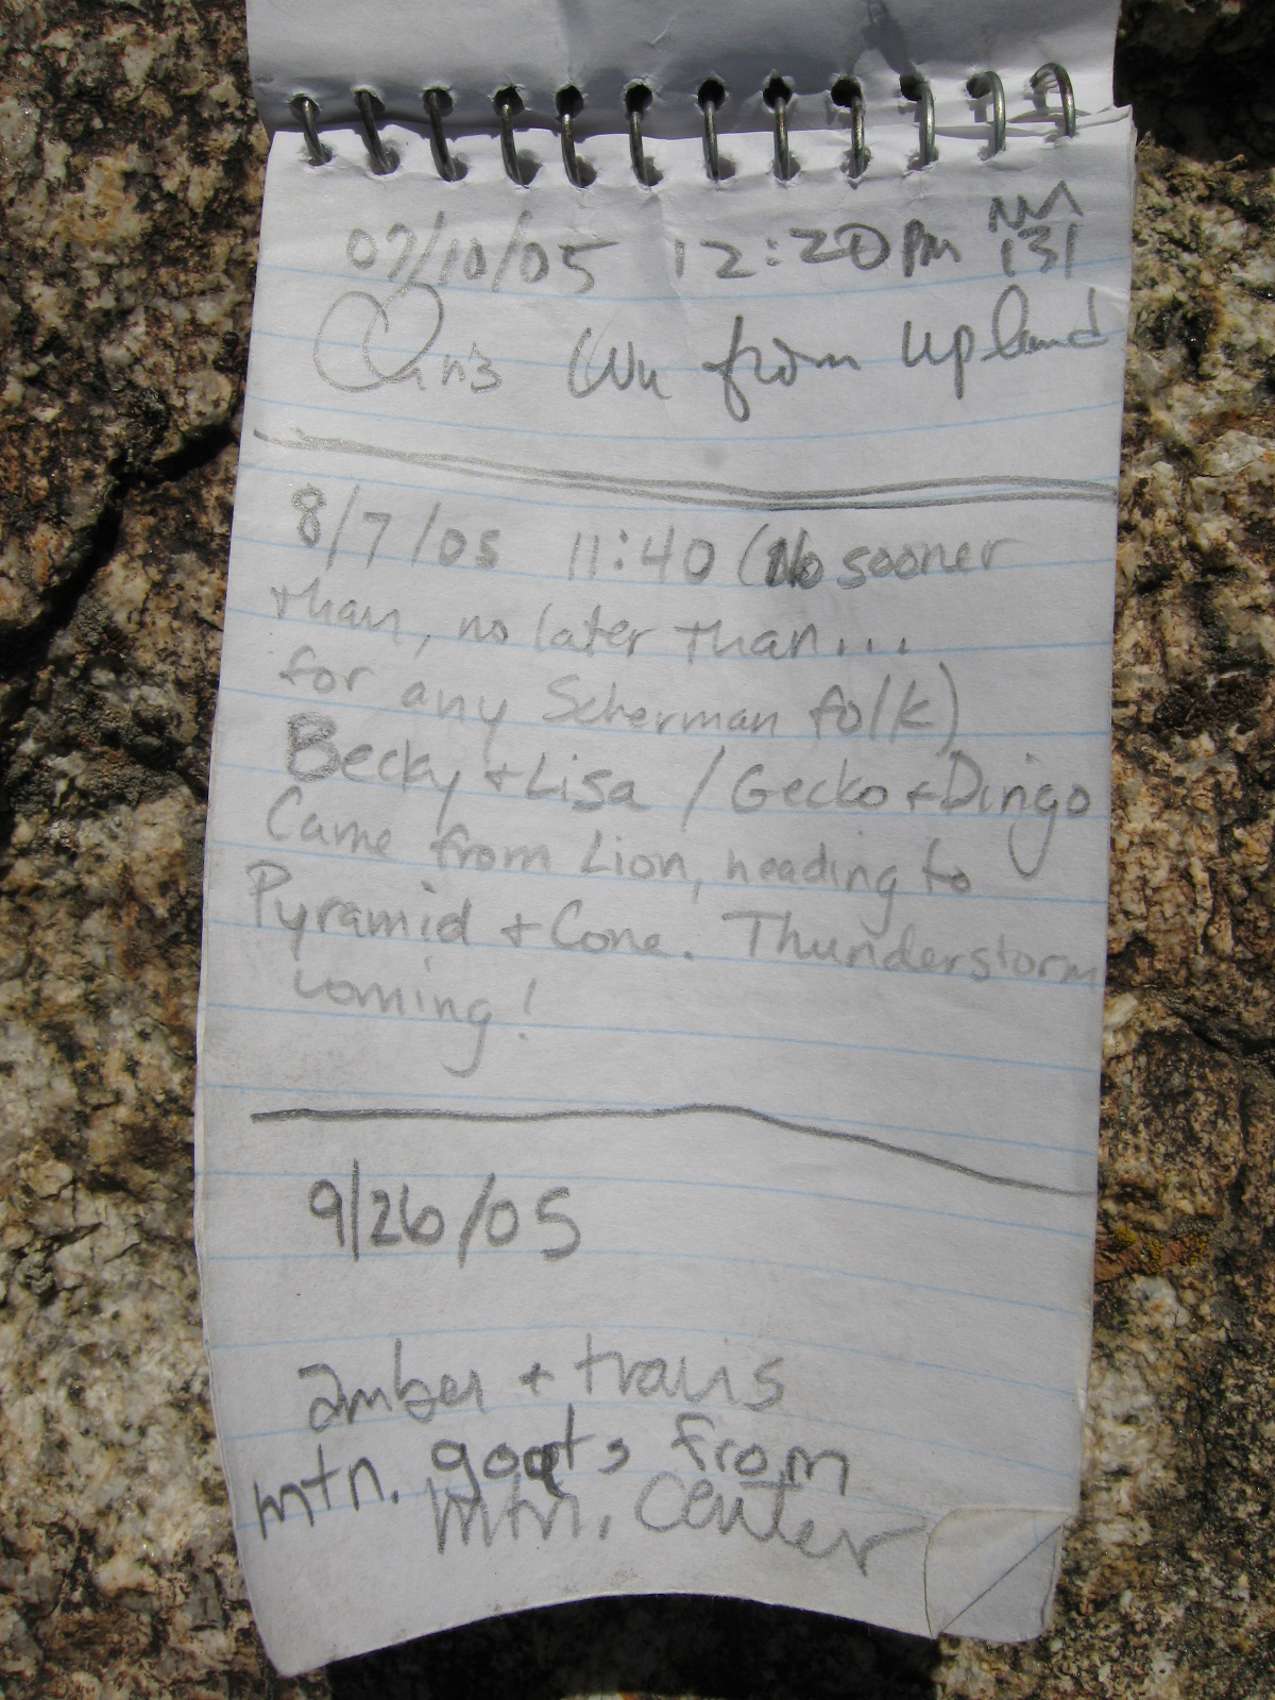 07/10/05 12:20 PM
131
Chris Wu from Upland
8/7/05 11:40 (No sooner
than, no later than...
for any Scherman folk)
Becky + Lisa / Gecko + Dingo
Came from Lion, heading to
Pyramid + Cone. Thunderstorm
coming!
9/26/05
amber + travis
mtn. goats from
mtn. Center